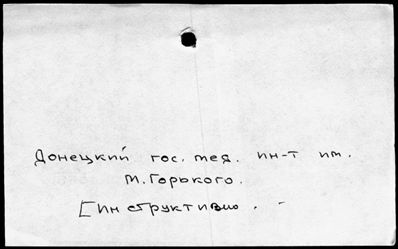 Донецкий гос. мед. ин-т им.
М. Горького.